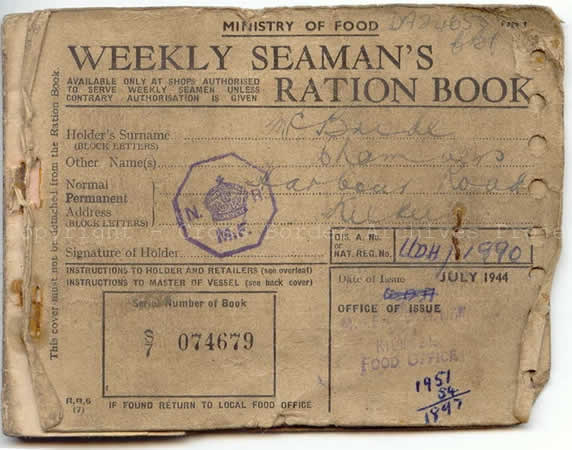 MINISTRY OF FOOD
PAGE 1
WEEKLY SEAMAN'S
AVAILABLE ONLY AT SHOPS AUTHORISED
TO SERVE WEEKLY SEAMEN UNLESS
CONTRARY AUTHORISATION IS GIVEN
RATION BOOK
Holder's Surname McBride
(BLOCK LETTERS)
Other Name(s)
Normal
Permanent Harbour Road
Address
(BLOCK LETTERS)
N. R
M.F.
Signature of Holder
DIS. A. No.
or
NAT. REG. No. UDH/1990
INSTRUCTIONS TO HOLDER AND RETAILERS (see overleaf)
INSTRUCTIONS TO MASTER OF VESSEL (see back cover)
Serial Number of Book
S/7 074679
R.B.6
(7)
IF FOUND RETURN TO LOCAL FOOD OFFICE
Date of Issue JULY 1944
OFFICE OF ISSUE
FOOD OFFICE
1951
54
1897
This cover must not be detached from the Ration Book.